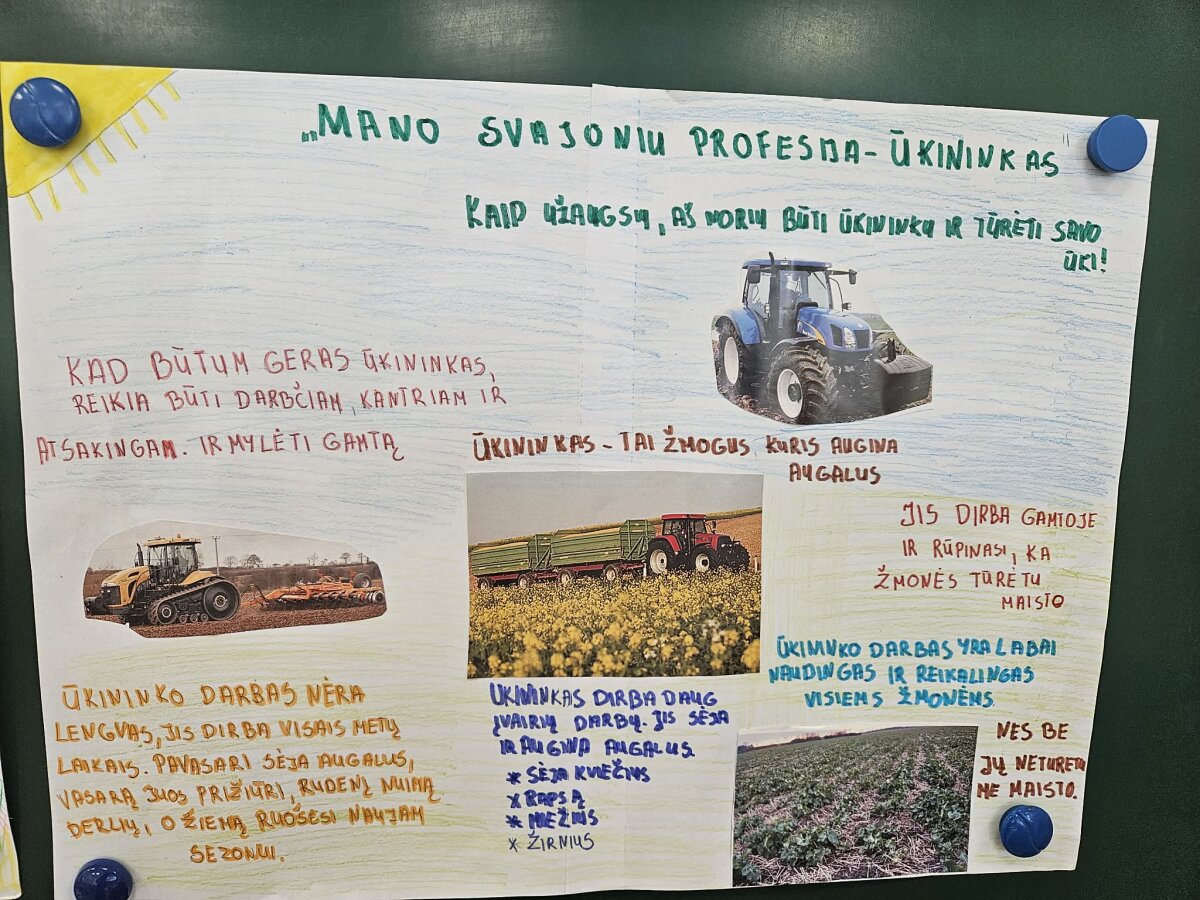 „MANO SVAJONIU PROFESIJA - ŪKININKAS"
KAIP UŽAUGSU, AŠ NORIU BŪTI ŪKININKU IR TŪRĖTI SAVO
ŪKI!
KAD BŪTUM GERAS ŪKININKAS,
REIKIA BŪTI DARBČIAM, KANTRIAM IR
ATSAKINGAM. IR MYLĖTI GAMTĄ
ŪKININKAS - TAI ŽMOGUS, KURIS AUGINA
AUGALUS
JIS DIRBA GAMTOJE
IR RŪPINASI, KA
ŽMONĖS TŪRĖTU
MAISTO
ŪKININKO DARBAS YRA LABAI
NAUDINGAS IR REIKALINGAS
VISIEMS ŽMONĖMS
NES BE
JŲ NETURETU
ME MAISTO.
ŪKININKO DARBAS NĖRA
LENGVAS, JIS DIRBA VISAIS METŲ
LAIKAIS. PAVASARI SĖJA AUGALUS,
VASARĄ JUOS PRIŽIŪRI, RUDENĮ NUIMĄ
DERLIŲ, O ŽIEMĄ RUOŠĖSI NAUJAM
SEZONUI.
ŪKININKAS DIRBA DAUG
ĮVAIRIŲ DARBŲ. JIS SĖJA
IR AUGINA AUGALUS.
* SĖJA KVIEČIUS
* RAPSĄ
* MIEŽIUS
* ŽIRNIUS